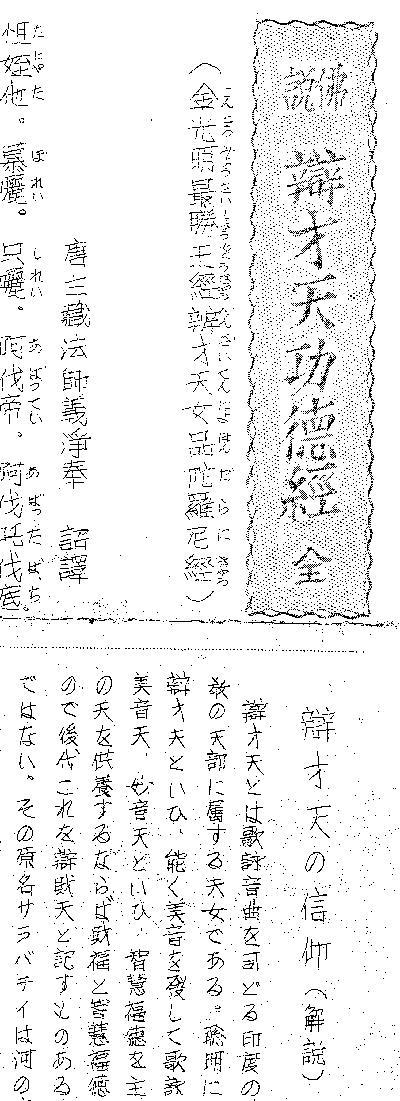 佛説 辯才天功德經 全
（金光明最勝王經辨才天女品陀羅尼經）
唐三藏法師義淨奉 詔譯
怛姪他。慕曬。只曬。阿伐帝。阿伐吒伐底。
辯才天の信仰（解説）
辯才天とは歌詠音曲を司どる印度の
教の天部に属する天女である。聡明に
辯才天といひ、能く美音を発して歌詠
美音天、妙音天といひ、智慧福徳を主
の天を供養するならば財福と智慧福徳
ので後代これを辯財天と記すものある
ではない。その原名サラバテイは河の